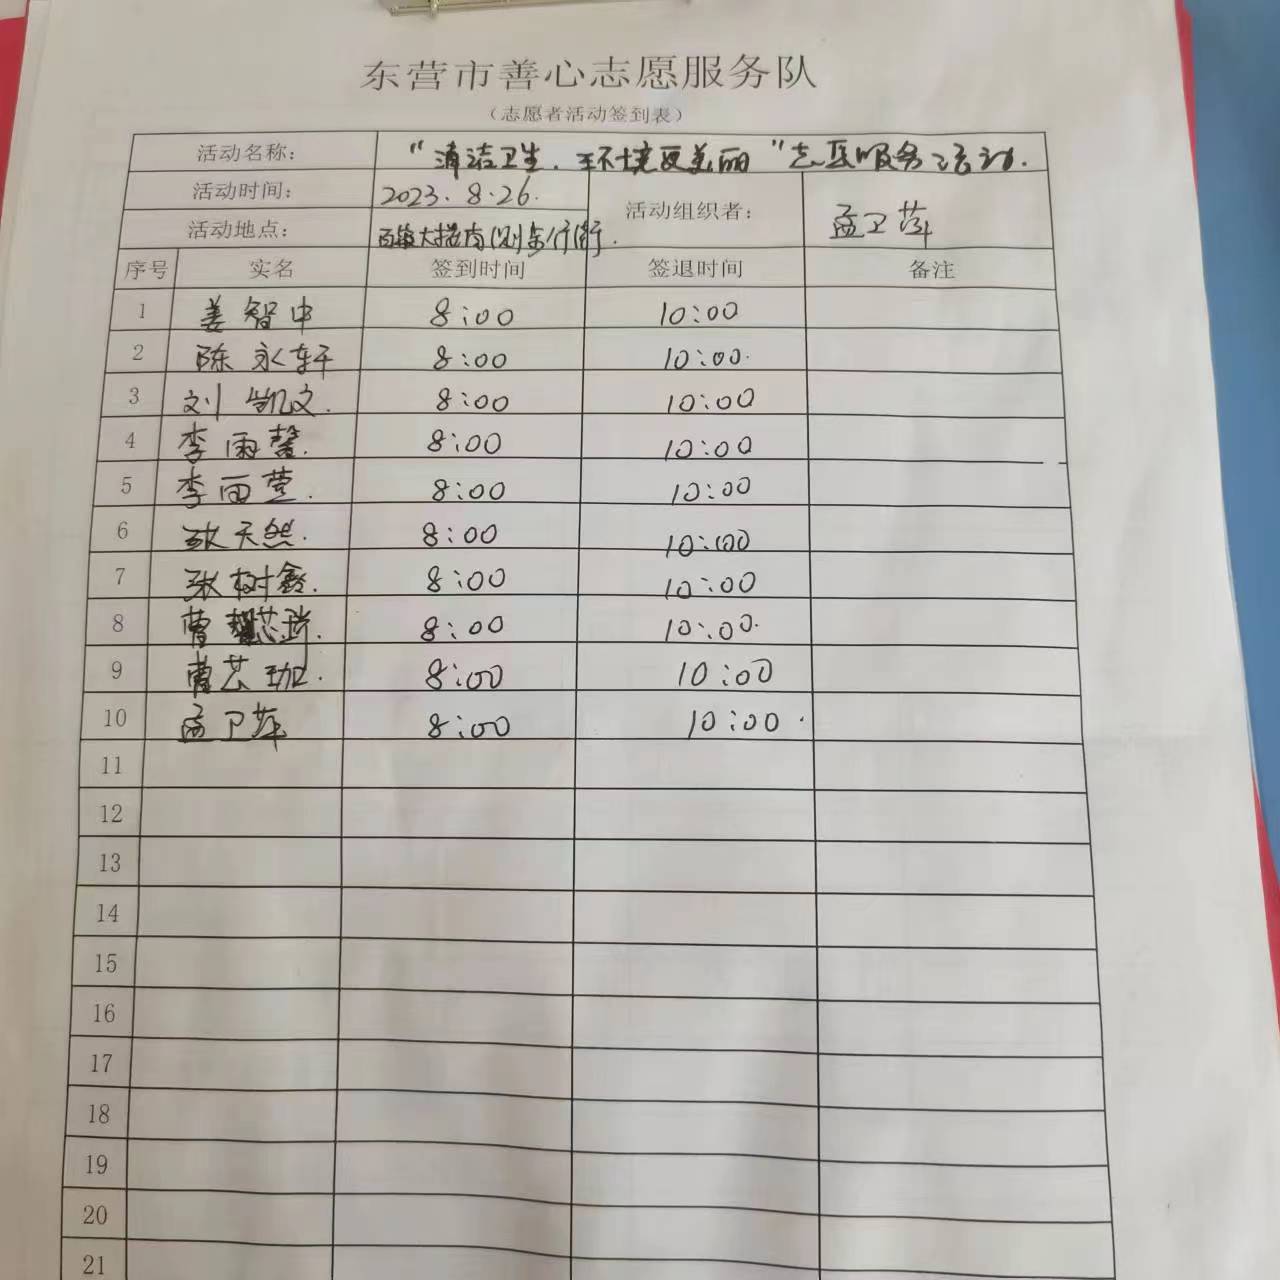 东营市善心志愿服务队
（志愿者活动签到表）
活动名称： “清洁卫生.环境更美丽”志愿服务活动.
活动时间： 2023.8.26. 活动组织者： 孟卫萍
活动地点： 大楼南侧步行街.
序号 实名 签到时间 签退时间 备注
1 姜智中 8:00 10:00
2 陈永轩 8:00 10:00.
3 刘凯文. 8:00 10:00
4 李雨馨. 8:00 10:00
5 李雨萱. 8:00 10:00
6 张天然. 8:00 10:00
7 张树鑫. 8:00 10:00
8 曹芯瑞. 8:00 10:00.
9 曹芯珈. 8:00 10:00
10 孟卫萍 8:00 10:00.
11
12
13
14
15
16
17
18
19
20
21